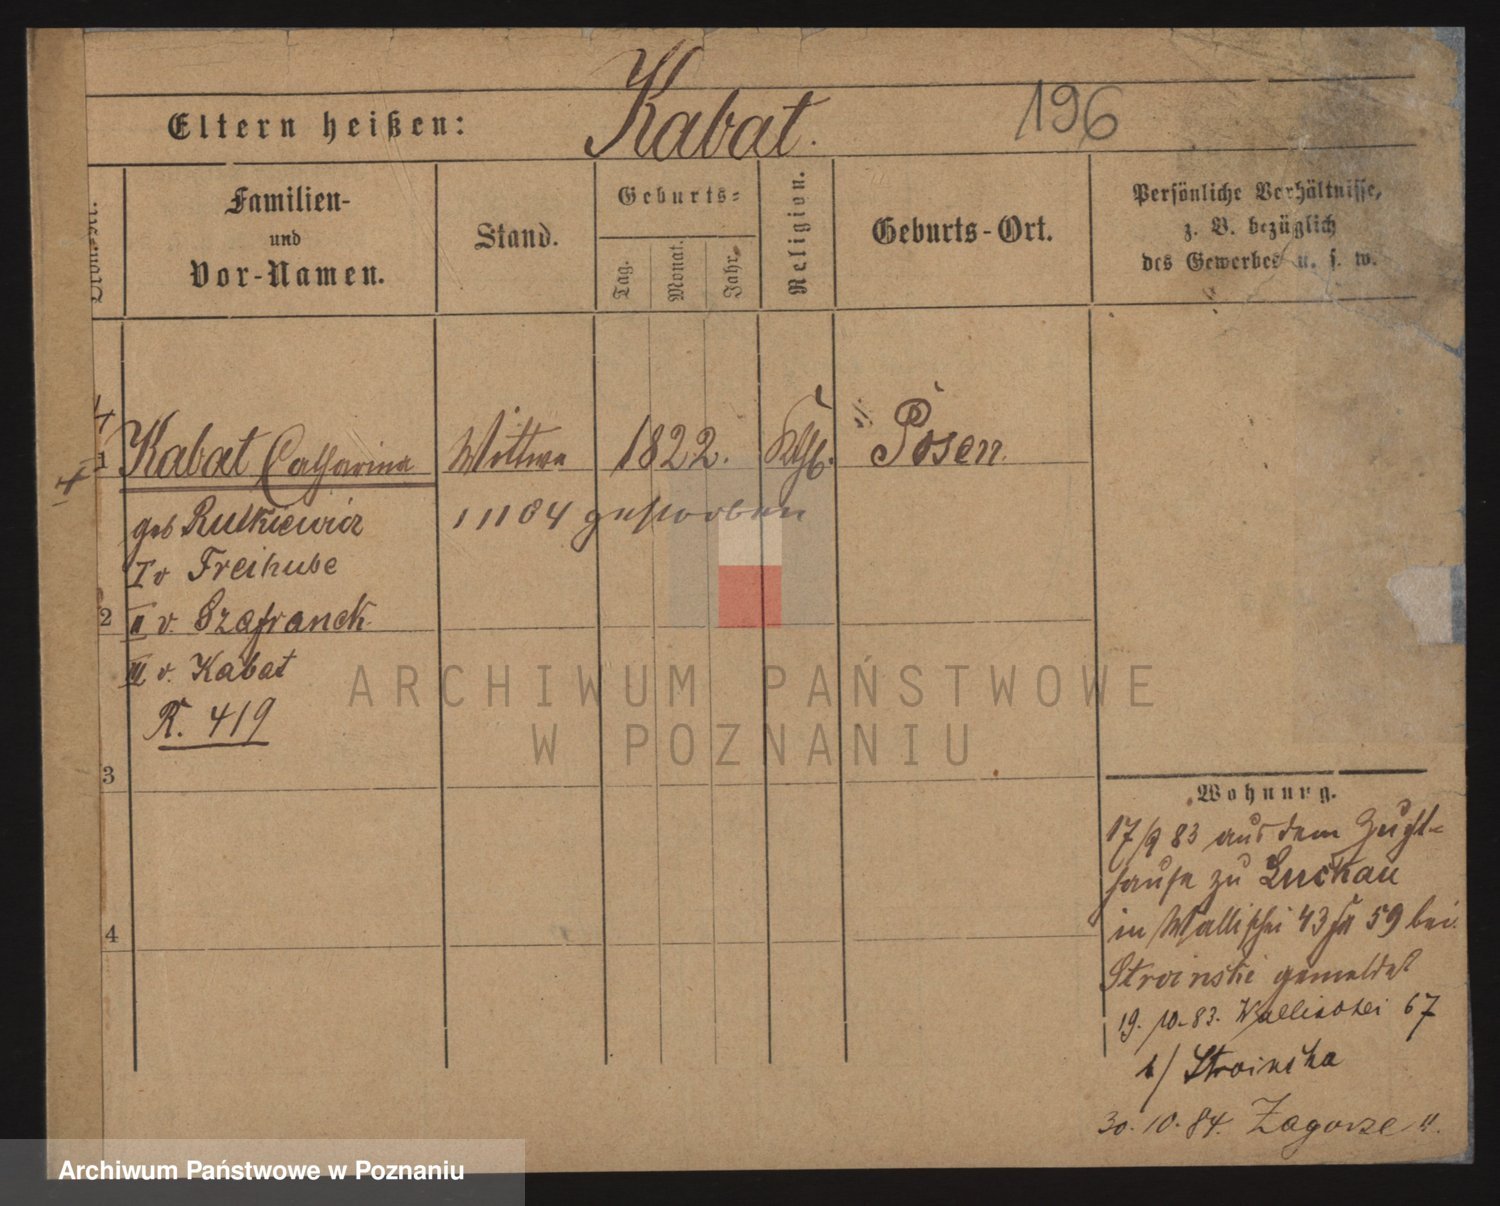 Eltern heißen: Kabat. 196
Familien-
und
Vor-Namen.
Stand.
Geburts-
Tag.
Monat.
Jahr.
Religion.
Geburts-Ort.
Persönliche Verhältnisse,
z. B. bezüglich
des Gewerbes u. s. w.
1 Kabat Catharina Wittwe 1822. Kth. Posen
geb Rutkiewicz gestorben
I v Freihube
2 II v. Szafranek
III v. Kabat
R. 419
3
4
Wohnung.
17/9 83 aus dem Zucht-
hause zu Luckau
in Wallischei 43 59 bei
Stroinski gemeldet
19. 10. 83. Wallischei 67
b/ Stroinska
30. 10. 84. Zagorze 11.
ARCHIWUM PAŃSTWOWE
W POZNANIU
Archiwum Państwowe w Poznaniu